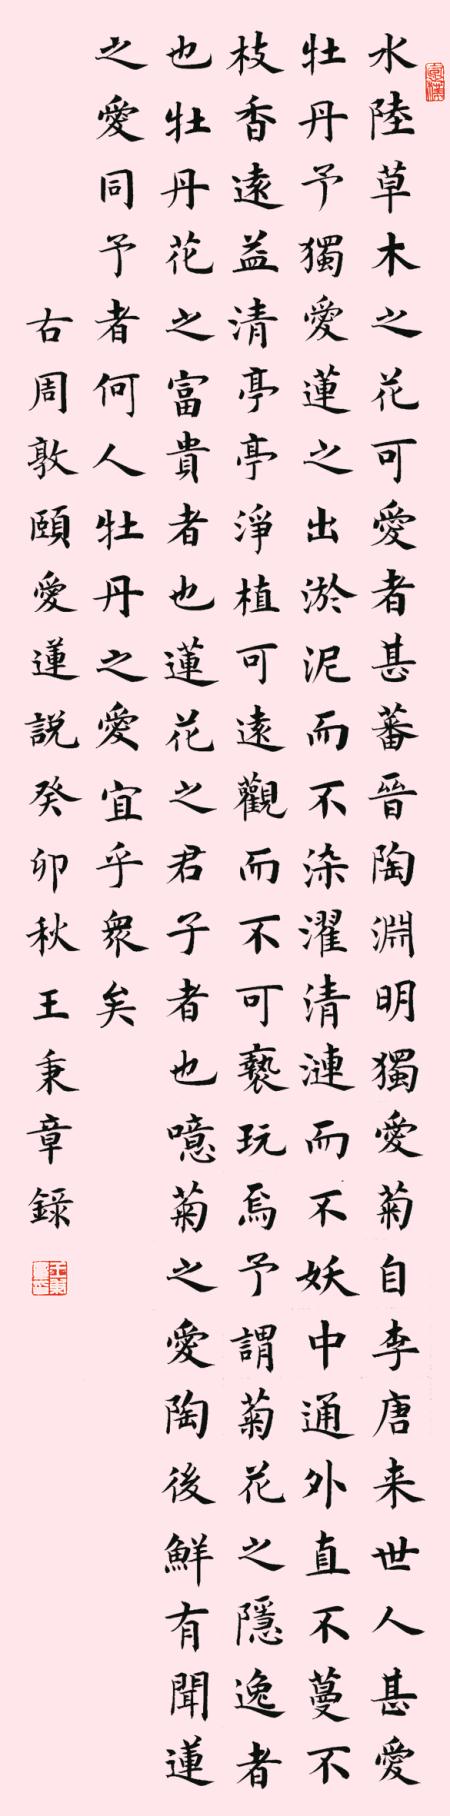 水陸草木之花可愛者甚蕃晉陶淵明獨愛菊自李唐来世人甚愛
牡丹予獨愛蓮之出淤泥而不染濯清漣而不妖中通外直不蔓不
枝香遠益清亭亭淨植可遠觀而不可褻玩焉予謂菊花之隱逸者
也牡丹花之富貴者也蓮花之君子者也噫菊之愛陶後鮮有聞蓮
之愛同予者何人牡丹之愛宜乎衆矣
右周敦頤愛蓮說癸卯秋王秉章錄